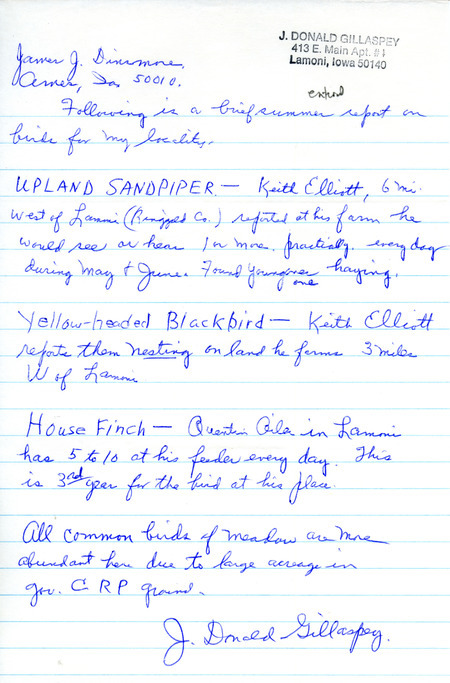 J. DONALD GILLASPEY
413 E. Main Apt. #1
Lamoni, Iowa 50140
James J. Dinsmore,
Ames, Ia. 50010.
Following is a brief summer report on
birds for my locality.
UPLAND SANDPIPER — Keith Elliott, 6 mi.
West of Lamoni (Ringgold Co.) reported at his farm he
would see or hear 1 or more practically every day
during May & June. Found young one haying.
Yellow-headed Blackbird — Keith Elliott
reports them nesting on land he farms 3 miles
W of Lamoni
House Finch — Quentin in Lamoni
has 5 to 10 at his feeder every day. This
is 3rd year for the bird at his place.
All common birds of meadow are more
abundant here due to large acreage in
gov. C R P ground.
J. Donald Gillaspey.